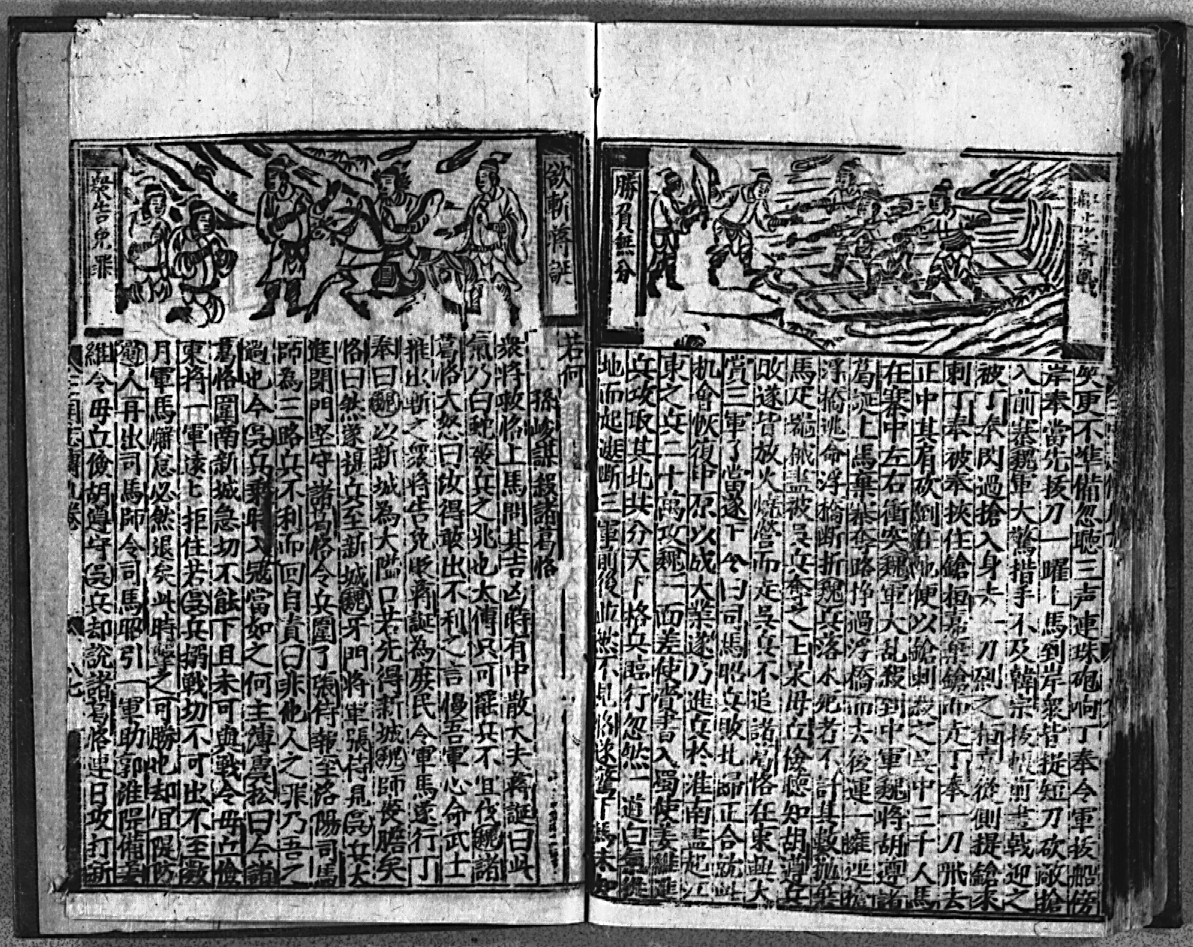 勝負無分
更不準備忽聴三声連珠砲响丁奉令軍抜船傍
岸奉當先抜刀一曜上馬到岸衆皆提短刀砍敵搶
入前寨魏軍大驚措手不及韓宗抜帳前畫戟迎之
被丁奉閃過搶入身去一刀剁之桓嘉從側提鎗來
刺丁奉被奉挾住鎗桓嘉棄鎗而走丁奉一刀飛去
正中其肩砍倒在地便以鎗刺殺之吳中三千人馬
在寨中左右衝突魏軍大乱殺到中軍魏將胡遵諸
葛誕上馬棄寨奪路掙過浮橋而去後運一擁逕搶
浮橋逃命浮橋断折魏兵落水死者不計其數抛棄
馬疋器械盡被吳兵奪之上呆毋丘儉聴知胡遵兵
敗遂皆放火燒營而走吳兵不追諸葛恪在東興大
賞三軍了當遂下令曰司馬昭兵敗北歸正合
机會恢復中原以成大業遂乃進兵於淮南盡起江
東之兵二十萬攻魏一面差使賫書入蜀使姜維進
兵攻取其北共分天下格兵臨行忽然一道白氣從
地而起遮断三軍前後並然不見將逐驚下馬未知
欲斬蔣誕
若何
孫峻謀殺諸葛恪
衆將救恪上馬問其吉凶時有中散大夫蔣誕曰此
氣乃白喪兵之兆也太傅只可罷兵不宜伐魏諸
葛恪大怒曰汝得敢出不利之言慢吾軍心命武士
推出斬之衆將告免貶蔣誕為庶民令軍馬遂行丁
奉曰魏以新城為大隘口若先得新城魏師喪膽矣
恪曰然遂提兵至新城魏牙門將軍張侍見吳兵大
進閉門堅守諸葛恪令兵圍了張侍報至洛陽司馬
師為三路兵不利而回自責曰非他人之罪乃吾之
過也今吳兵乘時入寇當如之何主簿虞松曰今諸
葛恪圍南新城急切不能下且未可與戰令毋丘儉
東將一軍遠上拒住若吳兵搦戰切不可出不至數
月軍馬懈怠必然退矣此時擊之可勝也却宜隄防
蜀人再出司馬師令司馬昭引一軍助郭淮隄備姜
維令毋丘儉胡遵守吳兵却說諸葛恪連日攻打新
衆告免罪
七